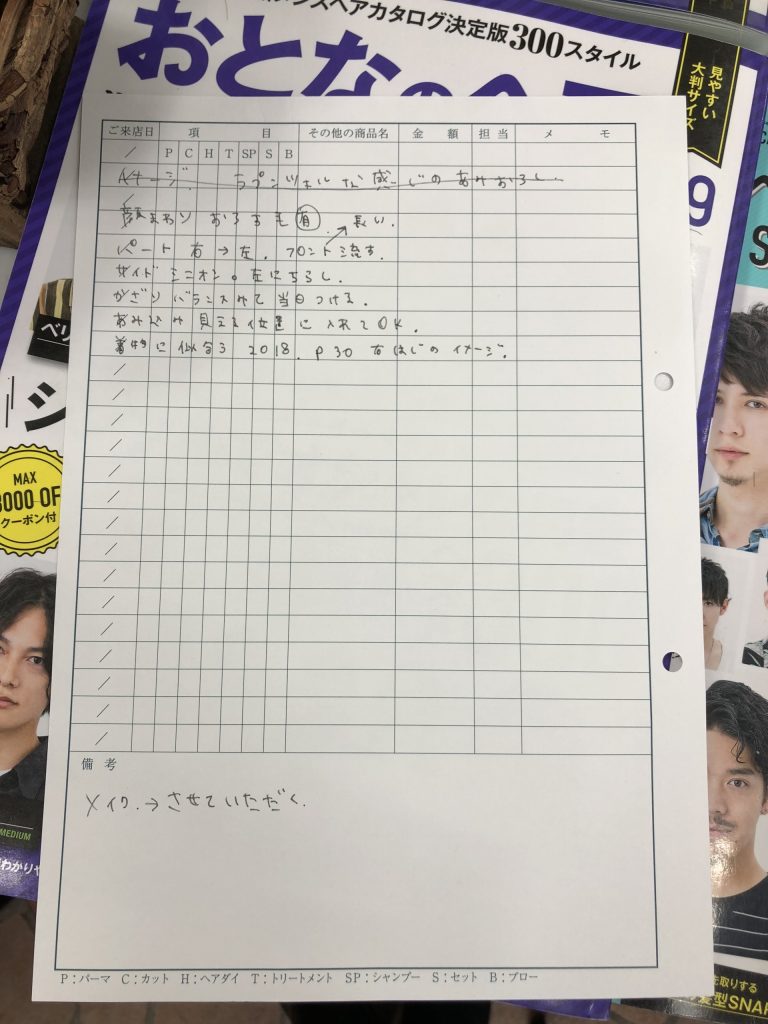 メンズヘアカタログ決定版300スタイル
おとなのヘア
見やすい
大判サイズ
ご来店日 項 目 その他の商品名 金 額 担 当 メ モ
/ P C H T SP S B
イメージ. ラプンツェルな感じのあみおろし.
顔まわり おろす毛 有. 長い.
パート 右→左. フロント流す.
サイド ミニオン。左にちらし.
かざり バランスみて 当日つける.
あみ込み 見える位置に入れてOK.
着物に似合う 2018. P30 右はじのイメージ.
備 考
メイク.→させていただく.
P:パーマ C:カット H:ヘアダイ T:トリートメント SP:シャンプー S:セット B:ブロー
9
S
ベリ
シ
MAX
3000 OF
クーポン付
MEDIUM
わかりや
取りする
髪型SNA